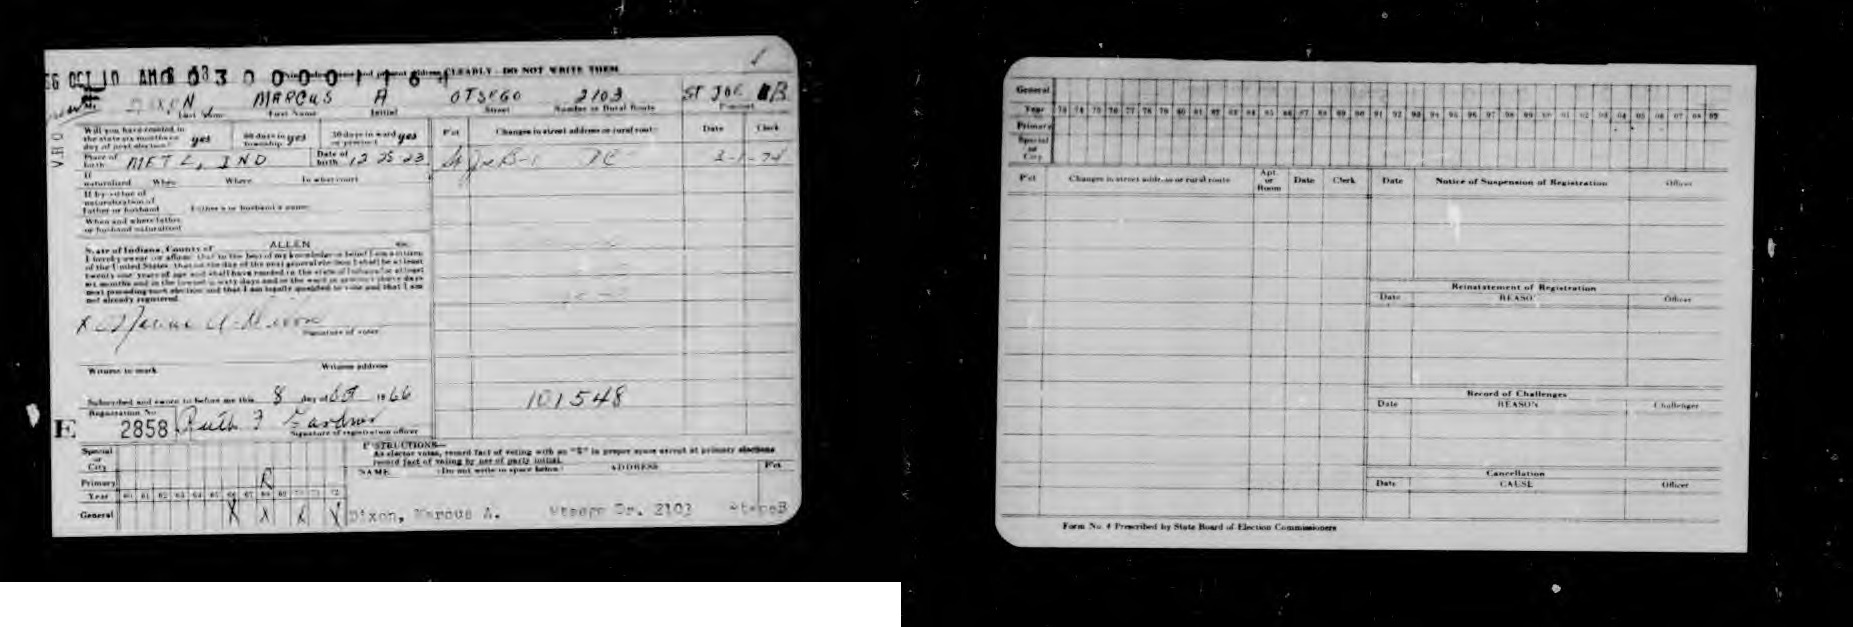 66 OCT 10 AM 0300001164
CLEARLY DO NOT WRITE THEM
DIXON, MARCUS A OTSEGO 2103 ST JOE B
Last Name First Name Initial Street Number or Rural Route Precinct
VRO
Will you have resided in the state six months on day of next election? yes 60 days in township yes 30 days in ward or precinct yes
Place of birth METZ, IND Date of birth 12 25 23
If naturalized When Where In what court
If by virtue of naturalization of Father or husband Father's or husband's name
When and where father or husband naturalized
State of Indiana, County of ALLEN ss:
I hereby swear (or affirm) that to the best of my knowledge or belief I am a citizen
of the United States, that on the day of the next general election I shall be at least
twenty one years of age and shall have resided in the state of Indiana for at least
six months and in the township sixty days and in the ward or precinct thirty days
next preceding such election and that I am legally qualified to vote and that I am
not already registered.
x Marcus A. Dixon
Signature of voter
Witness to mark Witness address
Subscribed and sworn to before me this 8 day of Oct 1966
Registration No.
E 2858 Ruth F Gardner
Signature of registration officer
P'ct Changes in street address or rural route Date Clerk
St Joe B-1 3-1-74
101548
INSTRUCTIONS
As elector votes, record fact of voting with an "X" in proper space except at primary elections
record fact of voting by use of party initial.
NAME (Do not write in space below) ADDRESS P'ct
Special or City
Primary R
Year 60 61 62 63 64 65 66 67 68 69 70 71 72
General X X X X
Dixon, Marcus A. Otsego Dr. 2103 StJoeB
General
Year 73 74 75 76 77 78 79 80 81 82 83 84 85 86 87 88 89 90 91 92 93 94 95 96 97 98 99 00 01 02 03 04 05 06 07 08 09
Primary
Special or City
P'ct Changes in street address or rural route Apt. or Room Date Clerk
Date Notice of Suspension of Registration Officer
Reinstatement of Registration
Date REASON Officer
Record of Challenges
Date REASON Challenger
Cancellation
Date CAUSE Officer
Form No. 4 Prescribed by State Board of Election Commissioners